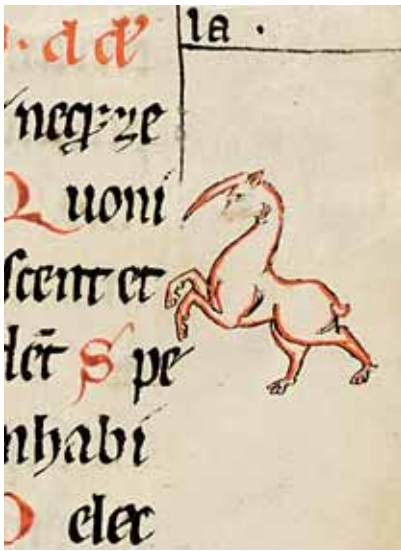 la .
neqꝫ ze
Quoni
scent et
dēt Spe
nhabi
D elec